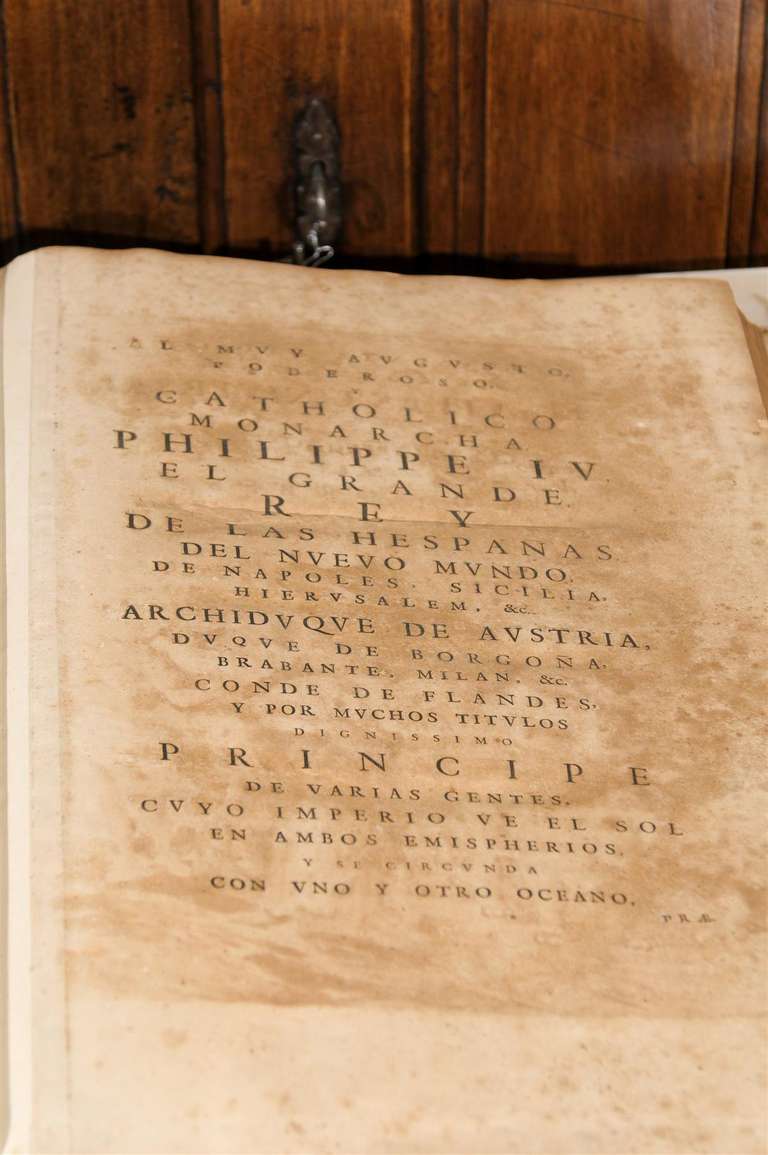 AL MVY AVGVSTO,
PODEROSO,
Y
CATHOLICO
MONARCHA
PHILIPPE IV
EL GRANDE,
REY
DE LAS HESPANAS,
DEL NVEVO MVNDO,
DE NAPOLES, SICILIA,
HIERVSALEM, &c.
ARCHIDVQVE DE AVSTRIA,
DVQVE DE BORGOÑA,
BRABANTE, MILAN, &c.
CONDE DE FLANDES,
Y POR MVCHOS TITVLOS
DIGNISSIMO
PRINCIPE
DE VARIAS GENTES,
CVYO IMPERIO VE EL SOL
EN AMBOS EMISPHERIOS,
Y SE CIRCVNDA
CON VNO Y OTRO OCEANO,
PRÆ-